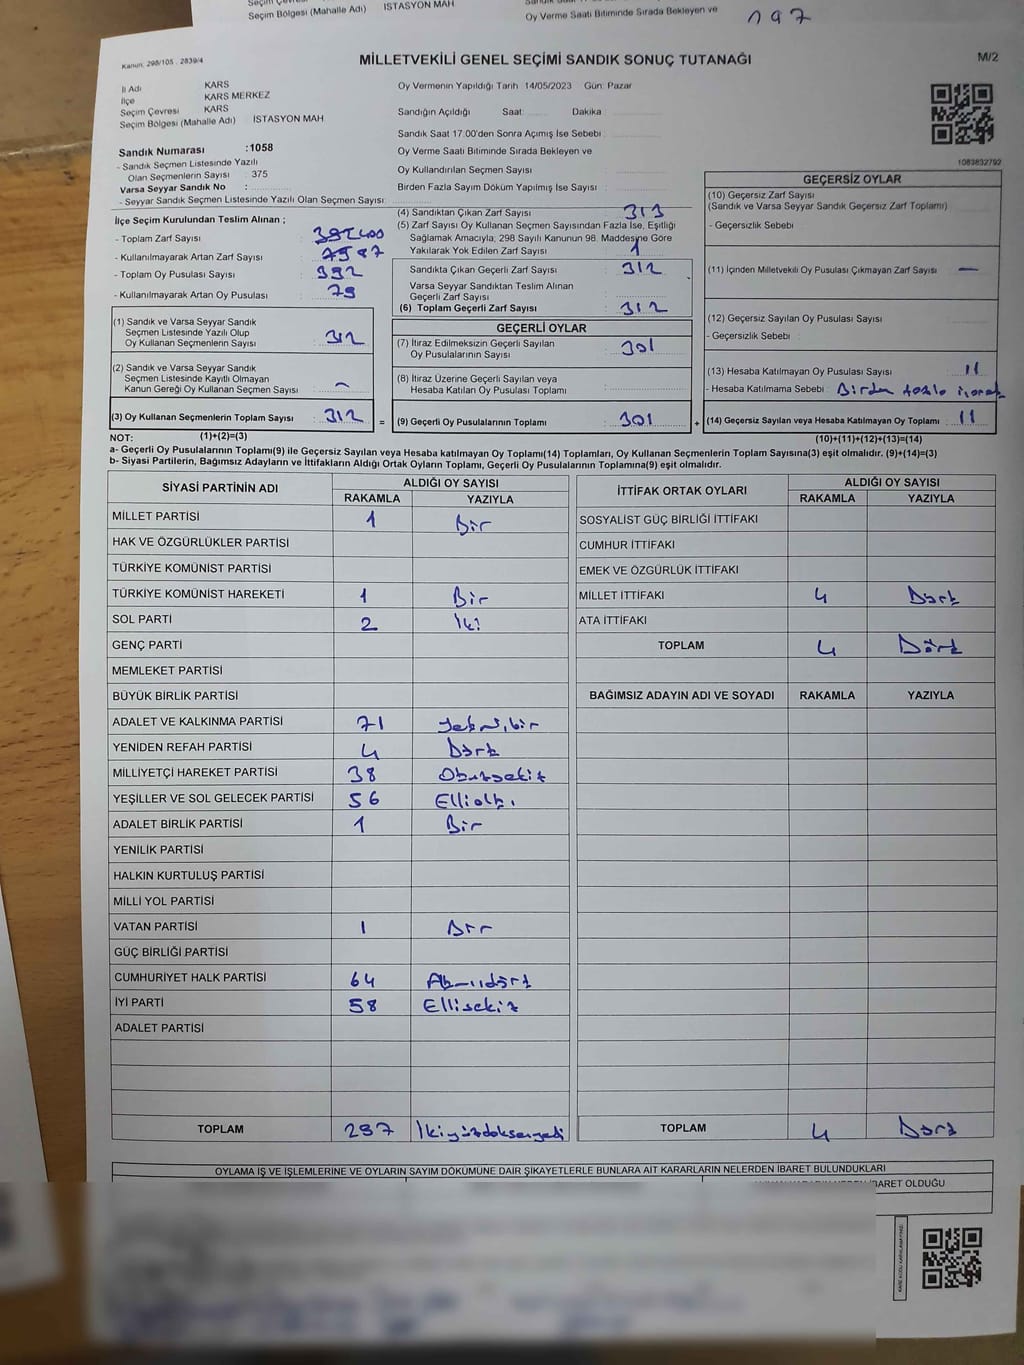 Seçim Bölgesi (Mahalle Adı) İSTASYON MAH
Oy Verme Saati Bitiminde Sırada Bekleyen ve
197
Kanun, 298/105 , 2839/4
MİLLETVEKİLİ GENEL SEÇİMİ SANDIK SONUÇ TUTANAĞI
M/2
İl Adı KARS
İlçe KARS MERKEZ
Seçim Çevresi KARS
Seçim Bölgesi (Mahalle Adı) İSTASYON MAH
Sandık Numarası :1058
- Sandık Seçmen Listesinde Yazılı
Olan Seçmenlerin Sayısı : 375
Varsa Seyyar Sandık No :
- Seyyar Sandık Seçmen Listesinde Yazılı Olan Seçmen Sayısı:
Oy Vermenin Yapıldığı Tarih 14/05/2023 Gün: Pazar
Sandığın Açıldığı Saat: Dakika :
Sandık Saat 17.00'den Sonra Açımış İse Sebebi :
Oy Verme Saati Bitiminde Sırada Bekleyen ve
Oy Kullandırılan Seçmen Sayısı :
Birden Fazla Sayım Döküm Yapılmış İse Sayısı :
1083832792
İlçe Seçim Kurulundan Teslim Alınan ;
- Toplam Zarf Sayısı : 400
- Kullanılmayarak Artan Zarf Sayısı : 87
- Toplam Oy Pusulası Sayısı : 392
- Kullanılmayarak Artan Oy Pusulası : 79
(1) Sandık ve Varsa Seyyar Sandık
Seçmen Listesinde Yazılı Olup
Oy Kullanan Seçmenlerin Sayısı : 312
(2) Sandık ve Varsa Seyyar Sandık
Seçmen Listesinde Kayıtlı Olmayan
Kanun Gereği Oy Kullanan Seçmen Sayısı : –
(3) Oy Kullanan Seçmenlerin Toplam Sayısı : 312
(1)+(2)=(3)
(4) Sandıktan Çıkan Zarf Sayısı : 313
(5) Zarf Sayısı Oy Kullanan Seçmen Sayısından Fazla İse, Eşitliği
Sağlamak Amacıyla, 298 Sayılı Kanunun 98. Maddesine Göre
Yakılarak Yok Edilen Zarf Sayısı : 1
Sandıkta Çıkan Geçerli Zarf Sayısı : 312
Varsa Seyyar Sandıktan Teslim Alınan
Geçerli Zarf Sayısı :
(6) Toplam Geçerli Zarf Sayısı : 312
GEÇERLİ OYLAR
(7) İtiraz Edilmeksizin Geçerli Sayılan
Oy Pusulalarının Sayısı : 301
(8) İtiraz Üzerine Geçerli Sayılan veya
Hesaba Katılan Oy Pusulası Toplamı :
= (9) Geçerli Oy Pusulalarının Toplamı : 301 +
GEÇERSİZ OYLAR
(10) Geçersiz Zarf Sayısı
(Sandık ve Varsa Seyyar Sandık Geçersiz Zarf Toplamı) :
- Geçersizlik Sebebi :
(11) İçinden Milletvekili Oy Pusulası Çıkmayan Zarf Sayısı : –
(12) Geçersiz Sayılan Oy Pusulası Sayısı :
- Geçersizlik Sebebi :
(13) Hesaba Katılmayan Oy Pusulası Sayısı : 11
- Hesaba Katılmama Sebebi : Birden fazla
(14) Geçersiz Sayılan veya Hesaba Katılmayan Oy Toplamı : 11
(10)+(11)+(12)+(13)=(14)
NOT:
a- Geçerli Oy Pusulalarının Toplamı(9) ile Geçersiz Sayılan veya Hesaba katılmayan Oy Toplamı(14) Toplamları, Oy Kullanan Seçmenlerin Toplam Sayısına(3) eşit olmalıdır. (9)+(14)=(3)
b- Siyasi Partilerin, Bağımsız Adayların ve İttifakların Aldığı Ortak Oyların Toplamı, Geçerli Oy Pusulalarının Toplamına(9) eşit olmalıdır.
SİYASİ PARTİNİN ADI
ALDIĞI OY SAYISI
RAKAMLA YAZIYLA
MİLLET PARTİSİ 1 Bir
HAK VE ÖZGÜRLÜKLER PARTİSİ
TÜRKİYE KOMÜNİST PARTİSİ
TÜRKİYE KOMÜNİST HAREKETİ 1 Bir
SOL PARTİ 2 İki
GENÇ PARTİ
MEMLEKET PARTİSİ
BÜYÜK BİRLİK PARTİSİ
ADALET VE KALKINMA PARTİSİ 71 Yetmişbir
YENİDEN REFAH PARTİSİ 4 Dört
MİLLİYETÇİ HAREKET PARTİSİ 38 Otuzsekiz
YEŞİLLER VE SOL GELECEK PARTİSİ 56 Ellialtı
ADALET BİRLİK PARTİSİ 1 Bir
YENİLİK PARTİSİ
HALKIN KURTULUŞ PARTİSİ
MİLLİ YOL PARTİSİ
VATAN PARTİSİ 1 Bir
GÜÇ BİRLİĞİ PARTİSİ
CUMHURİYET HALK PARTİSİ 64 Altmışdört
İYİ PARTİ 58 Ellisekiz
ADALET PARTİSİ
TOPLAM 297 İkiyüzdoksanyedi
İTTİFAK ORTAK OYLARI
ALDIĞI OY SAYISI
RAKAMLA YAZIYLA
SOSYALİST GÜÇ BİRLİĞİ İTTİFAKI
CUMHUR İTTİFAKI
EMEK VE ÖZGÜRLÜK İTTİFAKI
MİLLET İTTİFAKI 4 Dört
ATA İTTİFAKI
TOPLAM 4 Dört
BAĞIMSIZ ADAYIN ADI VE SOYADI RAKAMLA YAZIYLA
TOPLAM 4 Dört
OYLAMA İŞ VE İŞLEMLERİNE VE OYLARIN SAYIM DÖKÜMÜNE DAİR ŞİKAYETLERLE BUNLARA AİT KARARLARIN NELERDEN İBARET BULUNDUKLARI
İBARET OLDUĞU